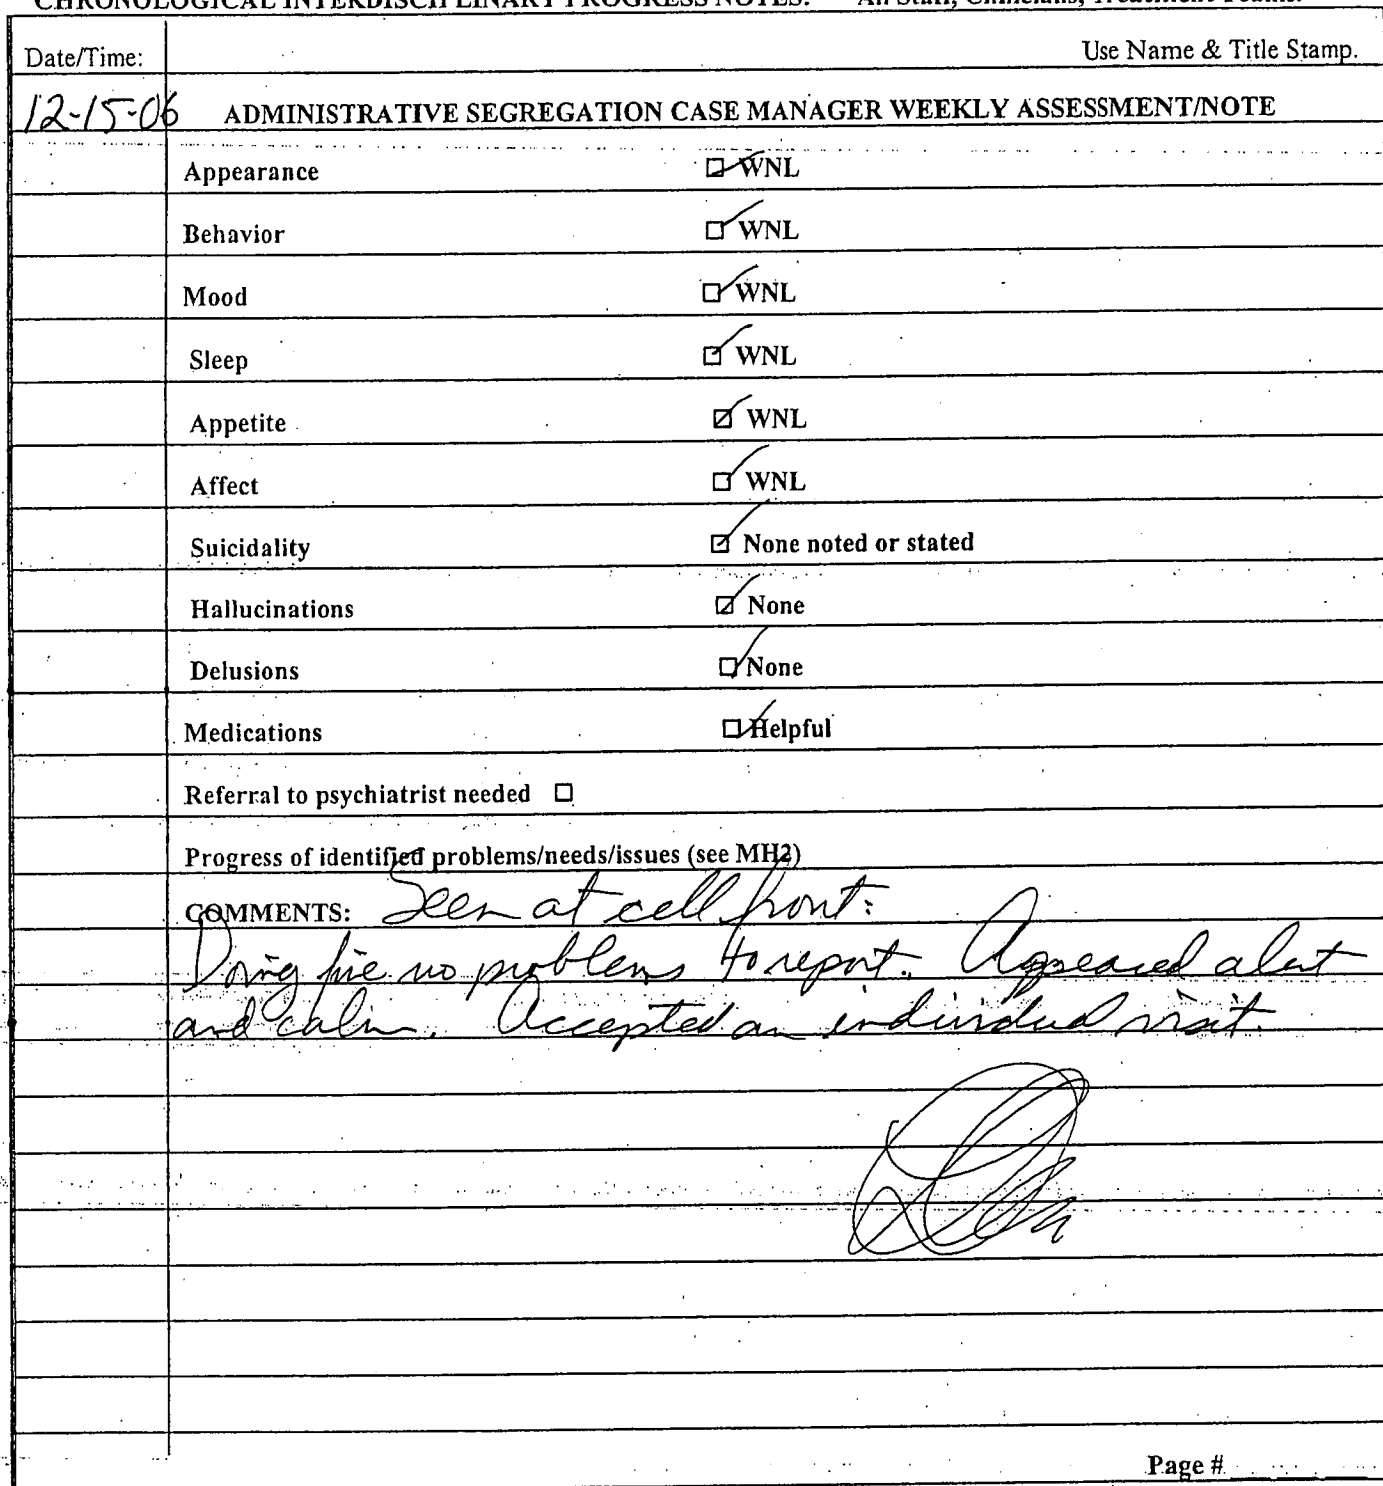 CHRONOLOGICAL INTERDISCIPLINARY PROGRESS NOTES. All Staff, Clinicians, Treatment Teams.
Date/Time: Use Name & Title Stamp.
12-15-06 ADMINISTRATIVE SEGREGATION CASE MANAGER WEEKLY ASSESSMENT/NOTE
Appearance ☑ WNL
Behavior ☑ WNL
Mood ☑ WNL
Sleep ☑ WNL
Appetite ☑ WNL
Affect ☑ WNL
Suicidality ☑ None noted or stated
Hallucinations ☑ None
Delusions ☑ None
Medications ☑ Helpful
Referral to psychiatrist needed ☐
Progress of identified problems/needs/issues (see MH2)
COMMENTS: Seen at cell front:
Doing fine no problems to report. Appeared alert
and calm. Accepted an individual visit.
Page #